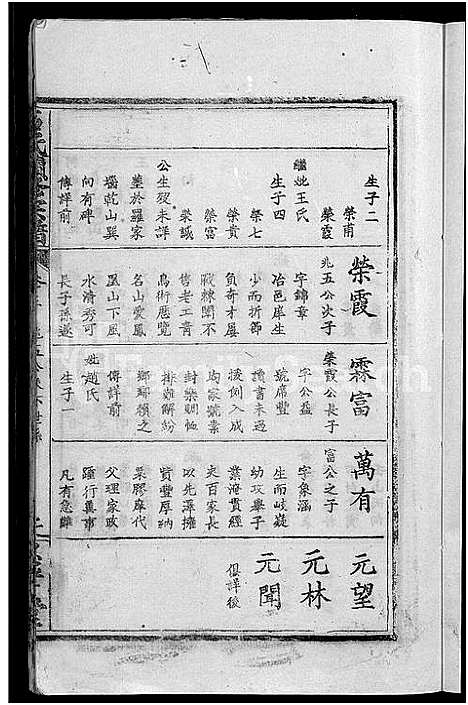 生子二
榮甫
榮霞
繼妣王氏
生子四
榮七
榮貴
榮富
榮誠
公生歿未詳
墓於羅家
壩乾山巽
向有碑
傳詳前
榮霞
兆五公次子
字錦章
冶邑庠生
少而折節
負奇才屢
戰棘闈不
售老工青
烏術歷覽
名山愛鳳
凰山下風
水清秀可
長子孫遂
霖富
榮霞公長子
字公益
號席豐
讀書未過
後例入成
均家號素
封樂賙恤
排難解紛
鄉鄰賴之
傳詳前
妣趙氏
生子一
萬有
富公之子
字象涵
生而岐嶷
幼攻舉子
業淹貫經
史百家長
以先澤擁
貲豐厚納
粟膠庠代
父理家政
躍行義事
凡有急難
元望
元林
元聞
俱詳後